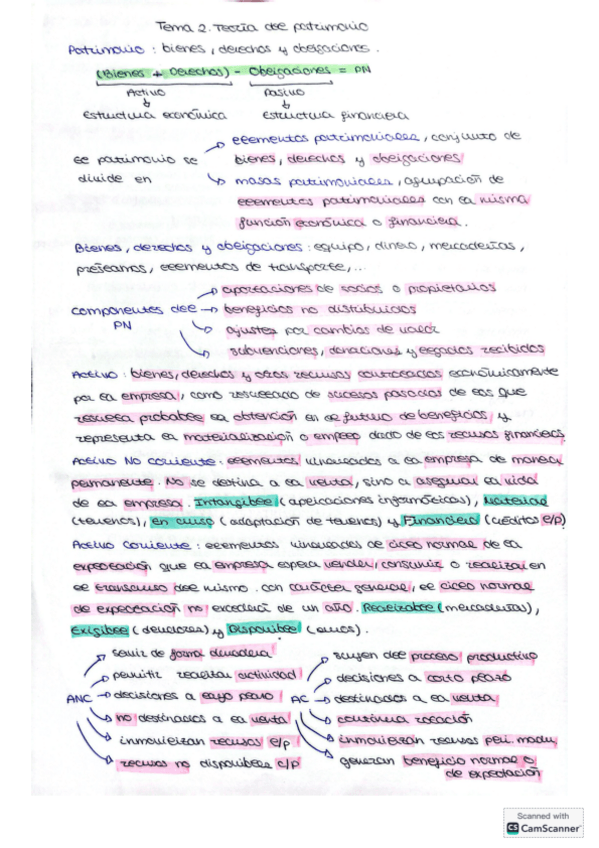 Tema 2. Teoría del patrimonio
Patrimonio : bienes, derechos y obligaciones.
(Bienes + Derechos) - Obligaciones = PN
Activo Pasivo
Estructura económica Estructura financiera
el patrimonio se divide en
elementos patrimoniales, conjunto de
bienes, derechos y obligaciones
masas patrimoniales, agrupación de
elementos patrimoniales con la misma
función económica o financiera.
Bienes, derechos y obligaciones : equipo, dinero, mercaderías,
préstamos, elementos de transporte,...
componentes del PN
aportaciones de socios o propietarios
beneficios no distribuidos
ajustes por cambios de valor
subvenciones, donaciones y legados recibidos
Activo : bienes, derechos y otros recursos controlados económicamente
por la empresa, como resultado de sucesos pasados de los que
resulta probable la obtención en el futuro de beneficios y
representa la materialización o empleo dado de los recursos financieros
Activo No corriente : elementos vinculados a la empresa de manera
permanente. No se destina a la venta, sino a asegurar la vida
de la empresa. Intangible (aplicaciones informáticas), Material
(terrenos), en curso (adaptación de terrenos) y Financiero (créditos l/p)
Activo Corriente : elementos vinculados al ciclo normal de la
explotación que la empresa espera vender, consumir o realizar en
el transcurso del mismo. con carácter general, el ciclo normal
de explotación no excederá de un año. Realizable (mercaderías),
Exigible (deudores) y Disponible (euros).
ANC
servir de forma duradera
permitir realizar actividad
decisiones a largo plazo
no destinados a la venta
inmovilizan recursos l/p
recursos no disponibles c/p
AC
surgen del proceso productivo
decisiones a corto plazo
destinados a la venta
continua rotación
inmovilizan recursos
generan beneficio normal
de explotación
Scanned with
CS CamScanner